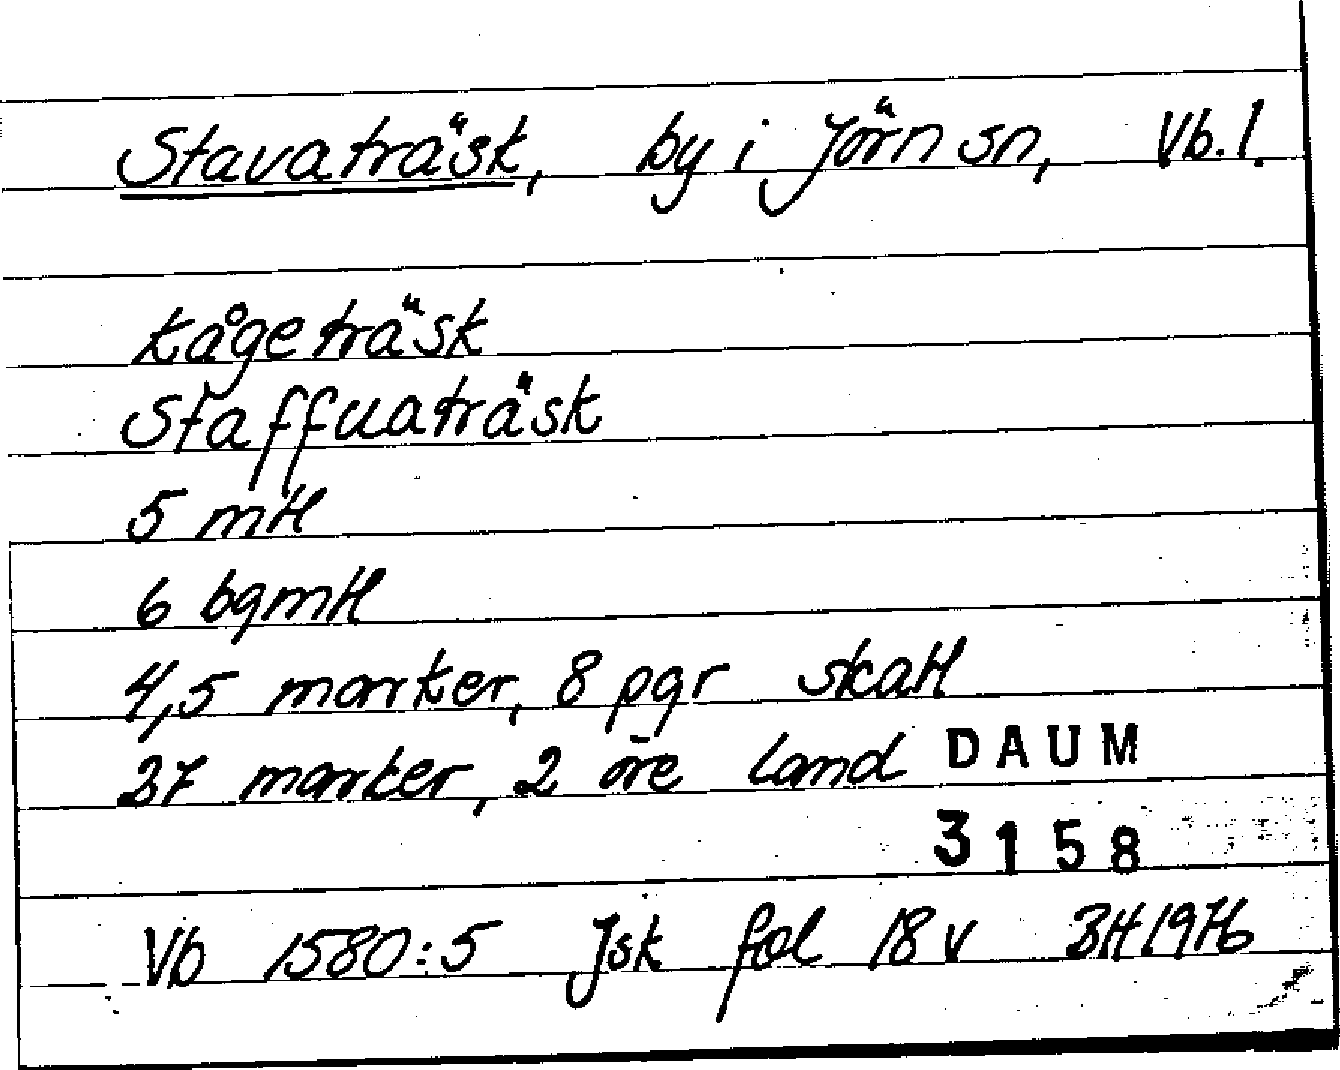 Stavaträsk, by i Jörn sn, Vb. l.
Kågeträsk
Staffuaträsk
5 mtl
6 bgmtl
4,5 marker, 8 pgr skatt
37 marker, 2 öre land
DAUM
3158
Vb 1580:5 Jsk fol 18 v